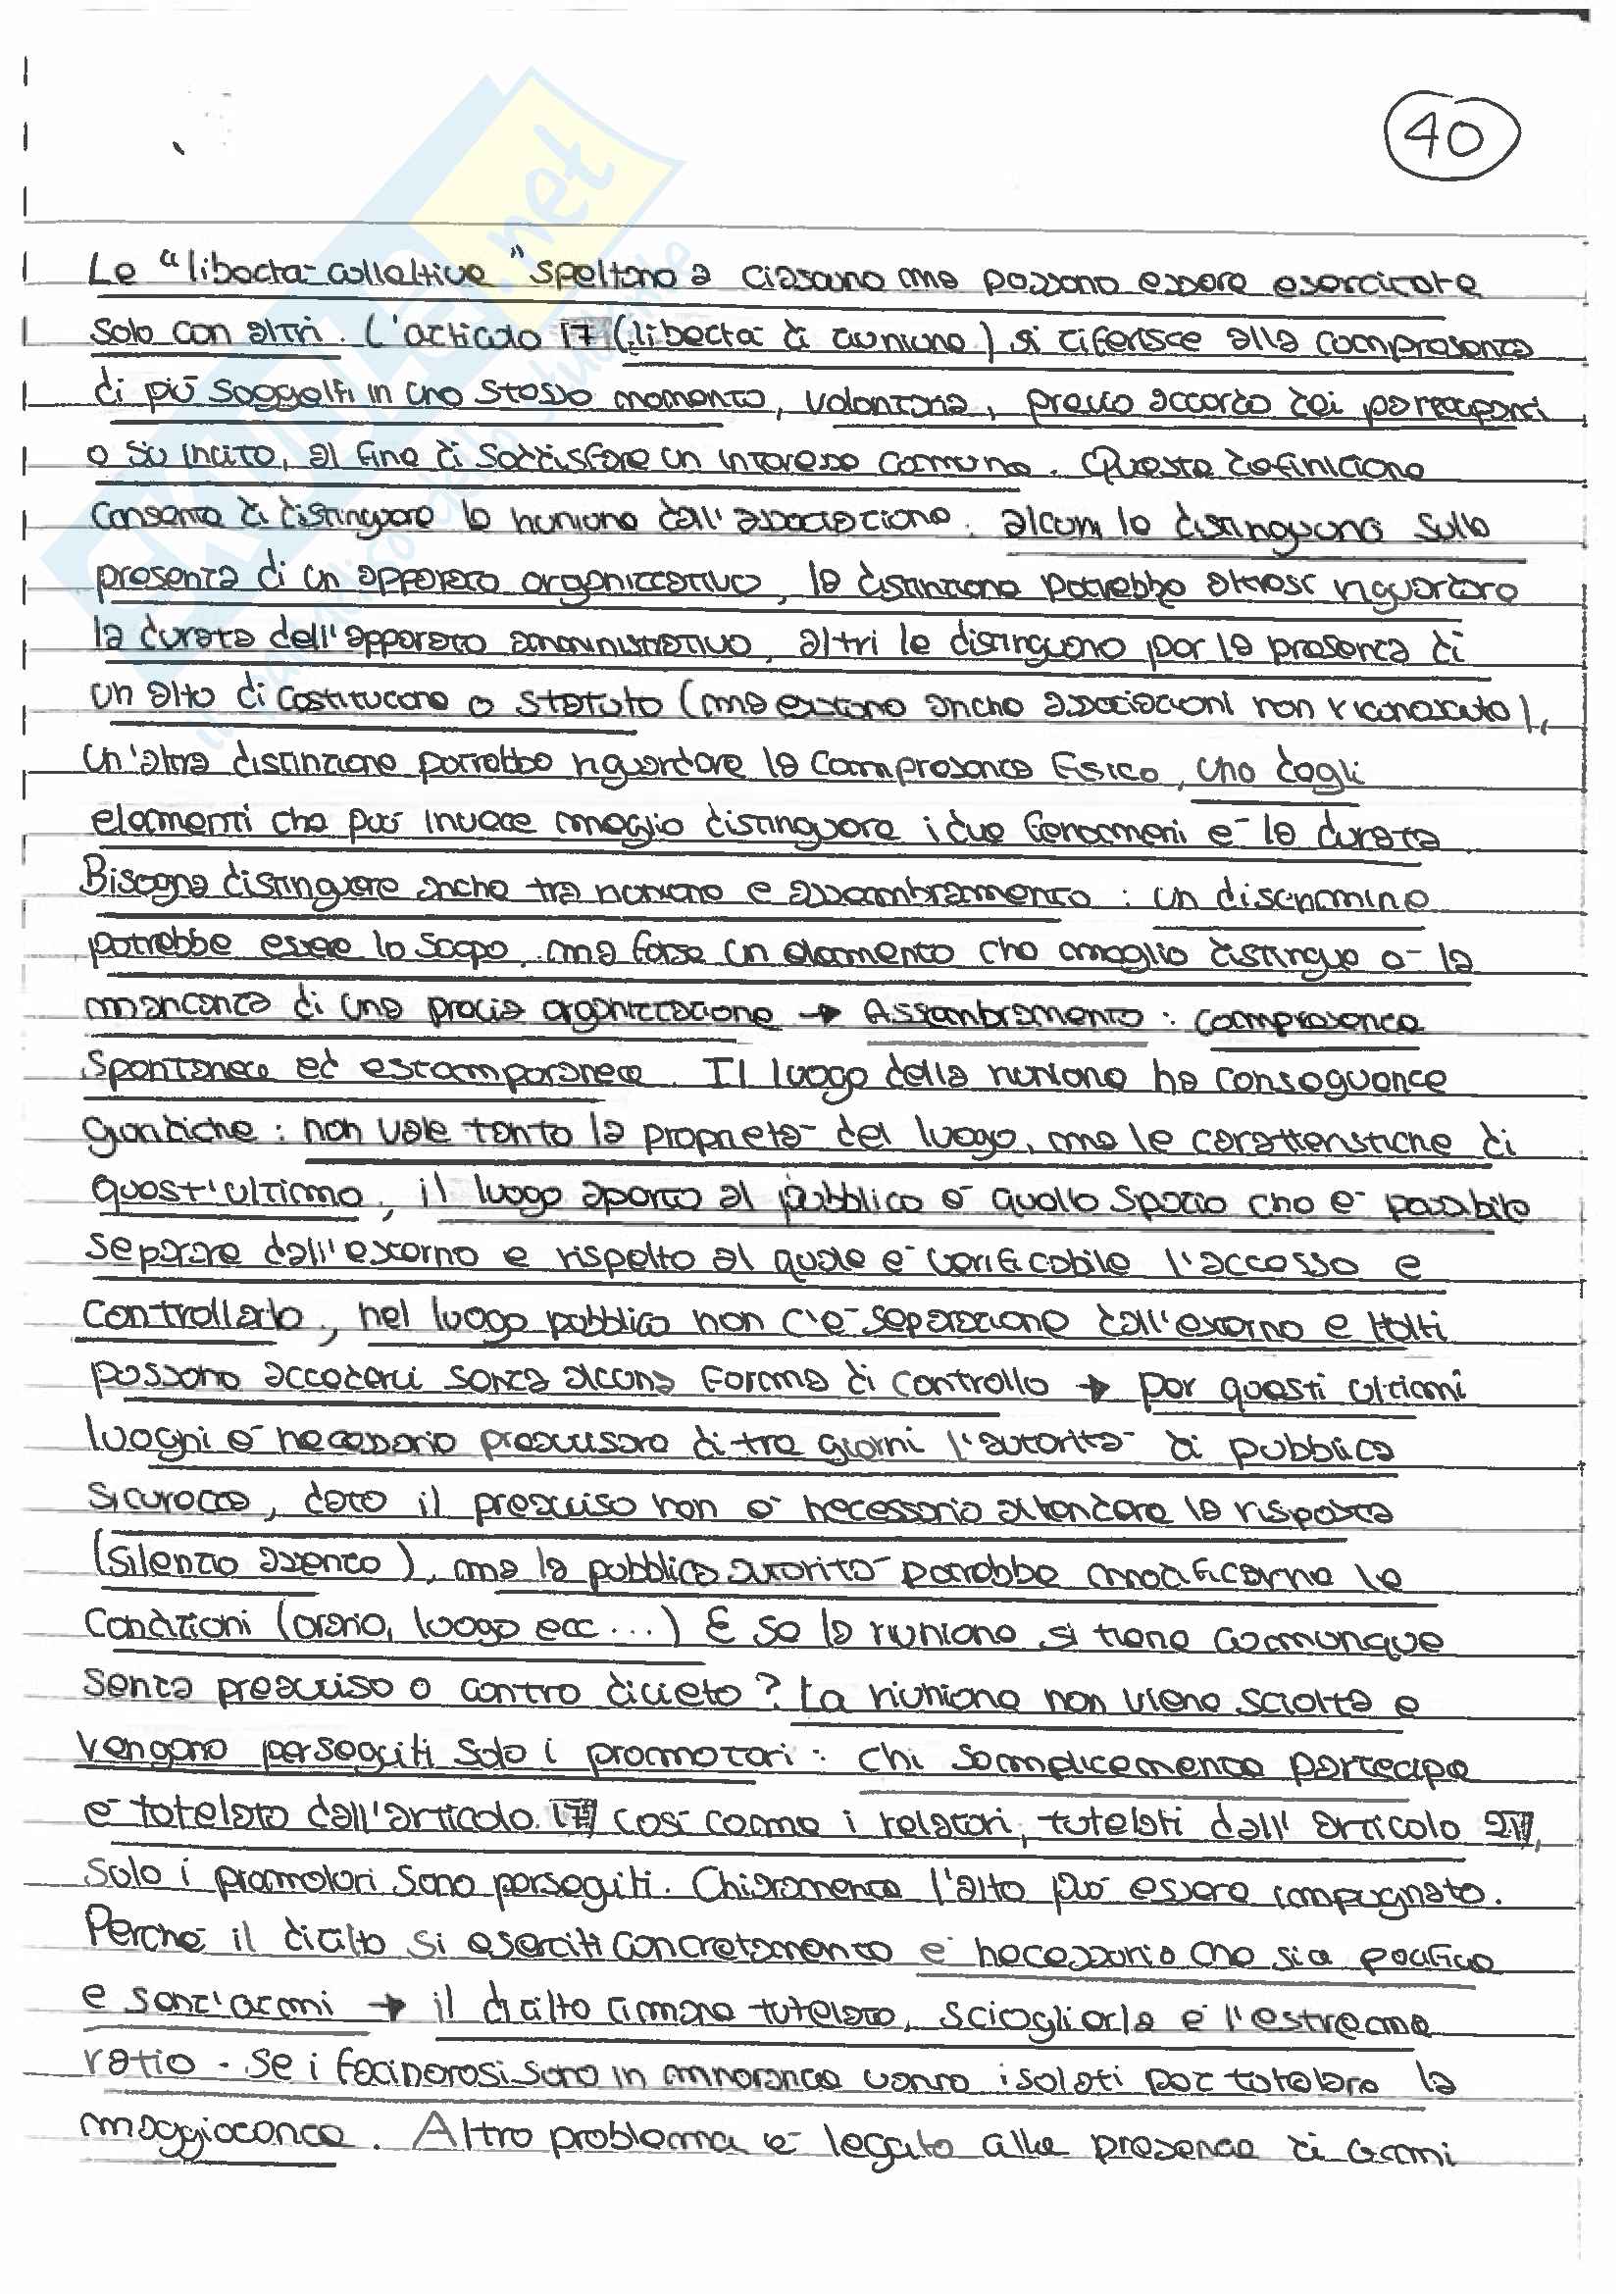 40
Le "libertà collettive" spettano a ciascuno ma possono essere esercitate
solo con altri. L'articolo 17 (libertà di riunione) si riferisce alla compresenza
di più soggetti in uno stesso momento, volontaria, previo accordo dei partecipanti
o su invito, al fine di soddisfare un interesse comune. Questa definizione
consente di distinguere la riunione dall'associazione: alcuni la distinguono sulla
presenza di un apparato organizzativo, la distinzione potrebbe altresì riguardare
la durata dell'apparato amministrativo, altri le distinguono per la presenza di
un atto di costituzione o statuto (ma esistono anche associazioni non riconosciute),
un'altra distinzione potrebbe riguardare la compresenza fisica, uno degli
elementi che può invece meglio distinguere i due fenomeni è la durata.
Bisogna distinguere anche tra riunione e assembramento: un discrimine
potrebbe essere lo scopo, ma forse un elemento che meglio distingue è la
mancanza di una previa organizzazione → Assembramento: compresenza
spontanea ed estemporanea. Il luogo della riunione ha conseguenze
giuridiche: non vale tanto la proprietà del luogo, ma le caratteristiche di
quest'ultimo, il luogo aperto al pubblico è quello spazio che è possibile
separare dall'esterno e rispetto al quale è verificabile l'accesso e
controllarlo, nel luogo pubblico non c'è separazione dall'esterno e tutti
possono accedervi senza alcuna forma di controllo → per questi ultimi
luoghi è necessario preavvisare di tre giorni l'autorità di pubblica
sicurezza, dato il preavviso non è necessario attendere la risposta
(silenzio assenso), ma la pubblica autorità potrebbe modificarne le
condizioni (orario, luogo ecc...) E se la riunione si tiene comunque
senza preavviso o contro divieto? La riunione non viene sciolta e
vengono perseguiti solo i promotori: chi semplicemente partecipa
è tutelato dall'articolo 17 così come i relatori, tutelati dall'articolo 21,
solo i promotori sono perseguiti. Chiaramente l'atto può essere impugnato.
Perché il diritto si eserciti concretamente è necessario che sia pacifico
e senz'armi → il diritto rimane tutelato, scioglierla è l'estrema
ratio. Se i facinorosi sono in minoranza vanno isolati per tutelare la
maggioranza. Altro problema è legato alla presenza di armi